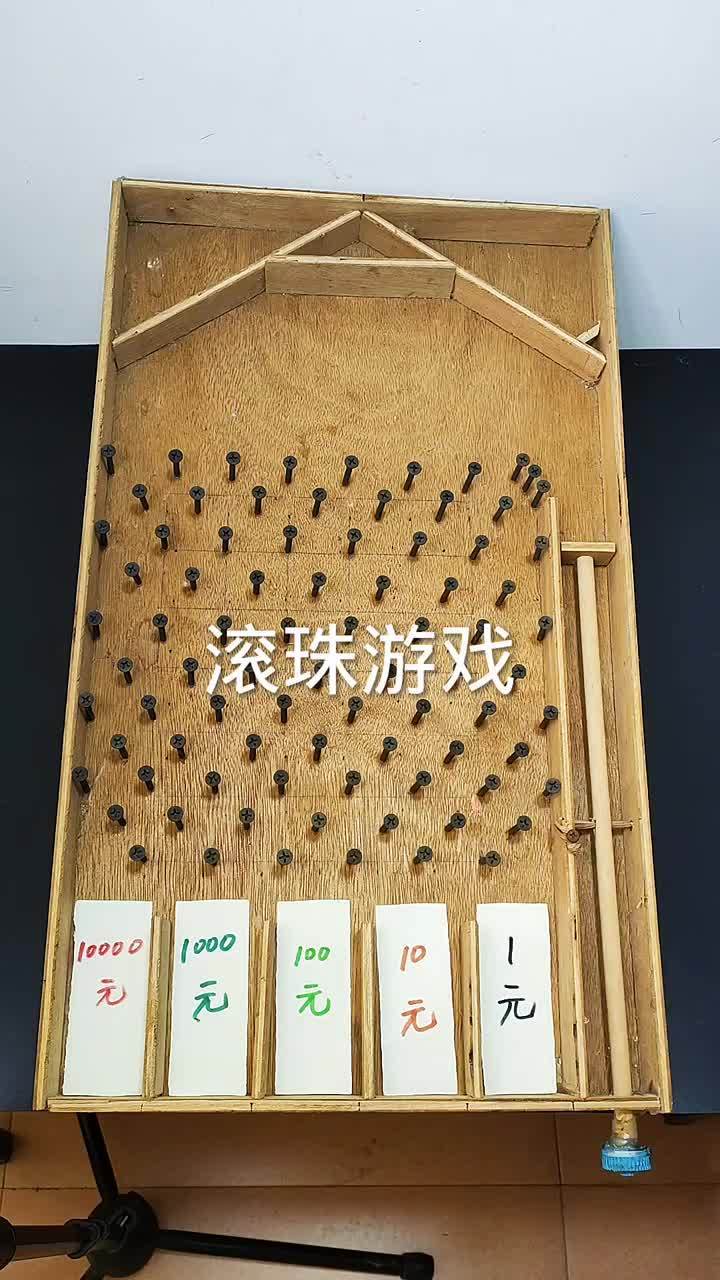 滚珠游戏
10000
元
1000
元
100
元
10
元
1
元